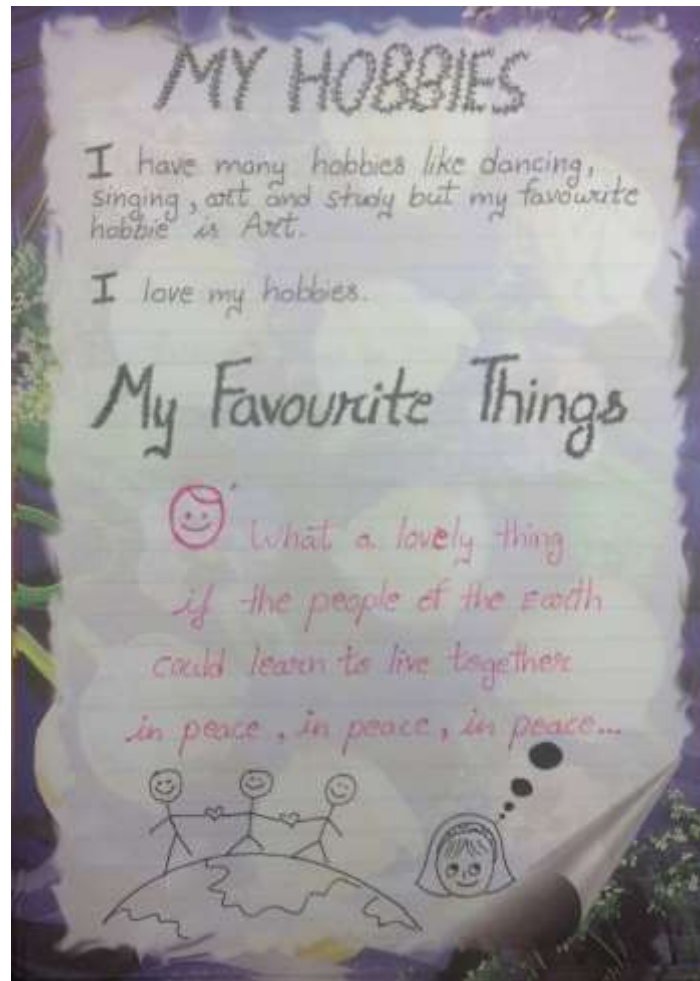 MY HOBBIES
I have many hobbies like dancing,
singing, art and study but my favourite
hobbie is Art.
I love my hobbies.
My Favourite Things
What a lovely thing
if the people of the Earth
could learn to live together
in peace, in peace, in peace...